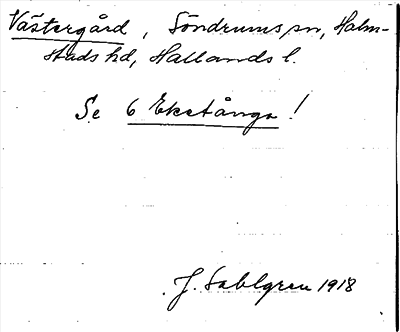 Västergård, Söndrums sn, Halm-
stads hd, Hallands l.
Se 6 Ekstånga!
J. Sahlgren 1918